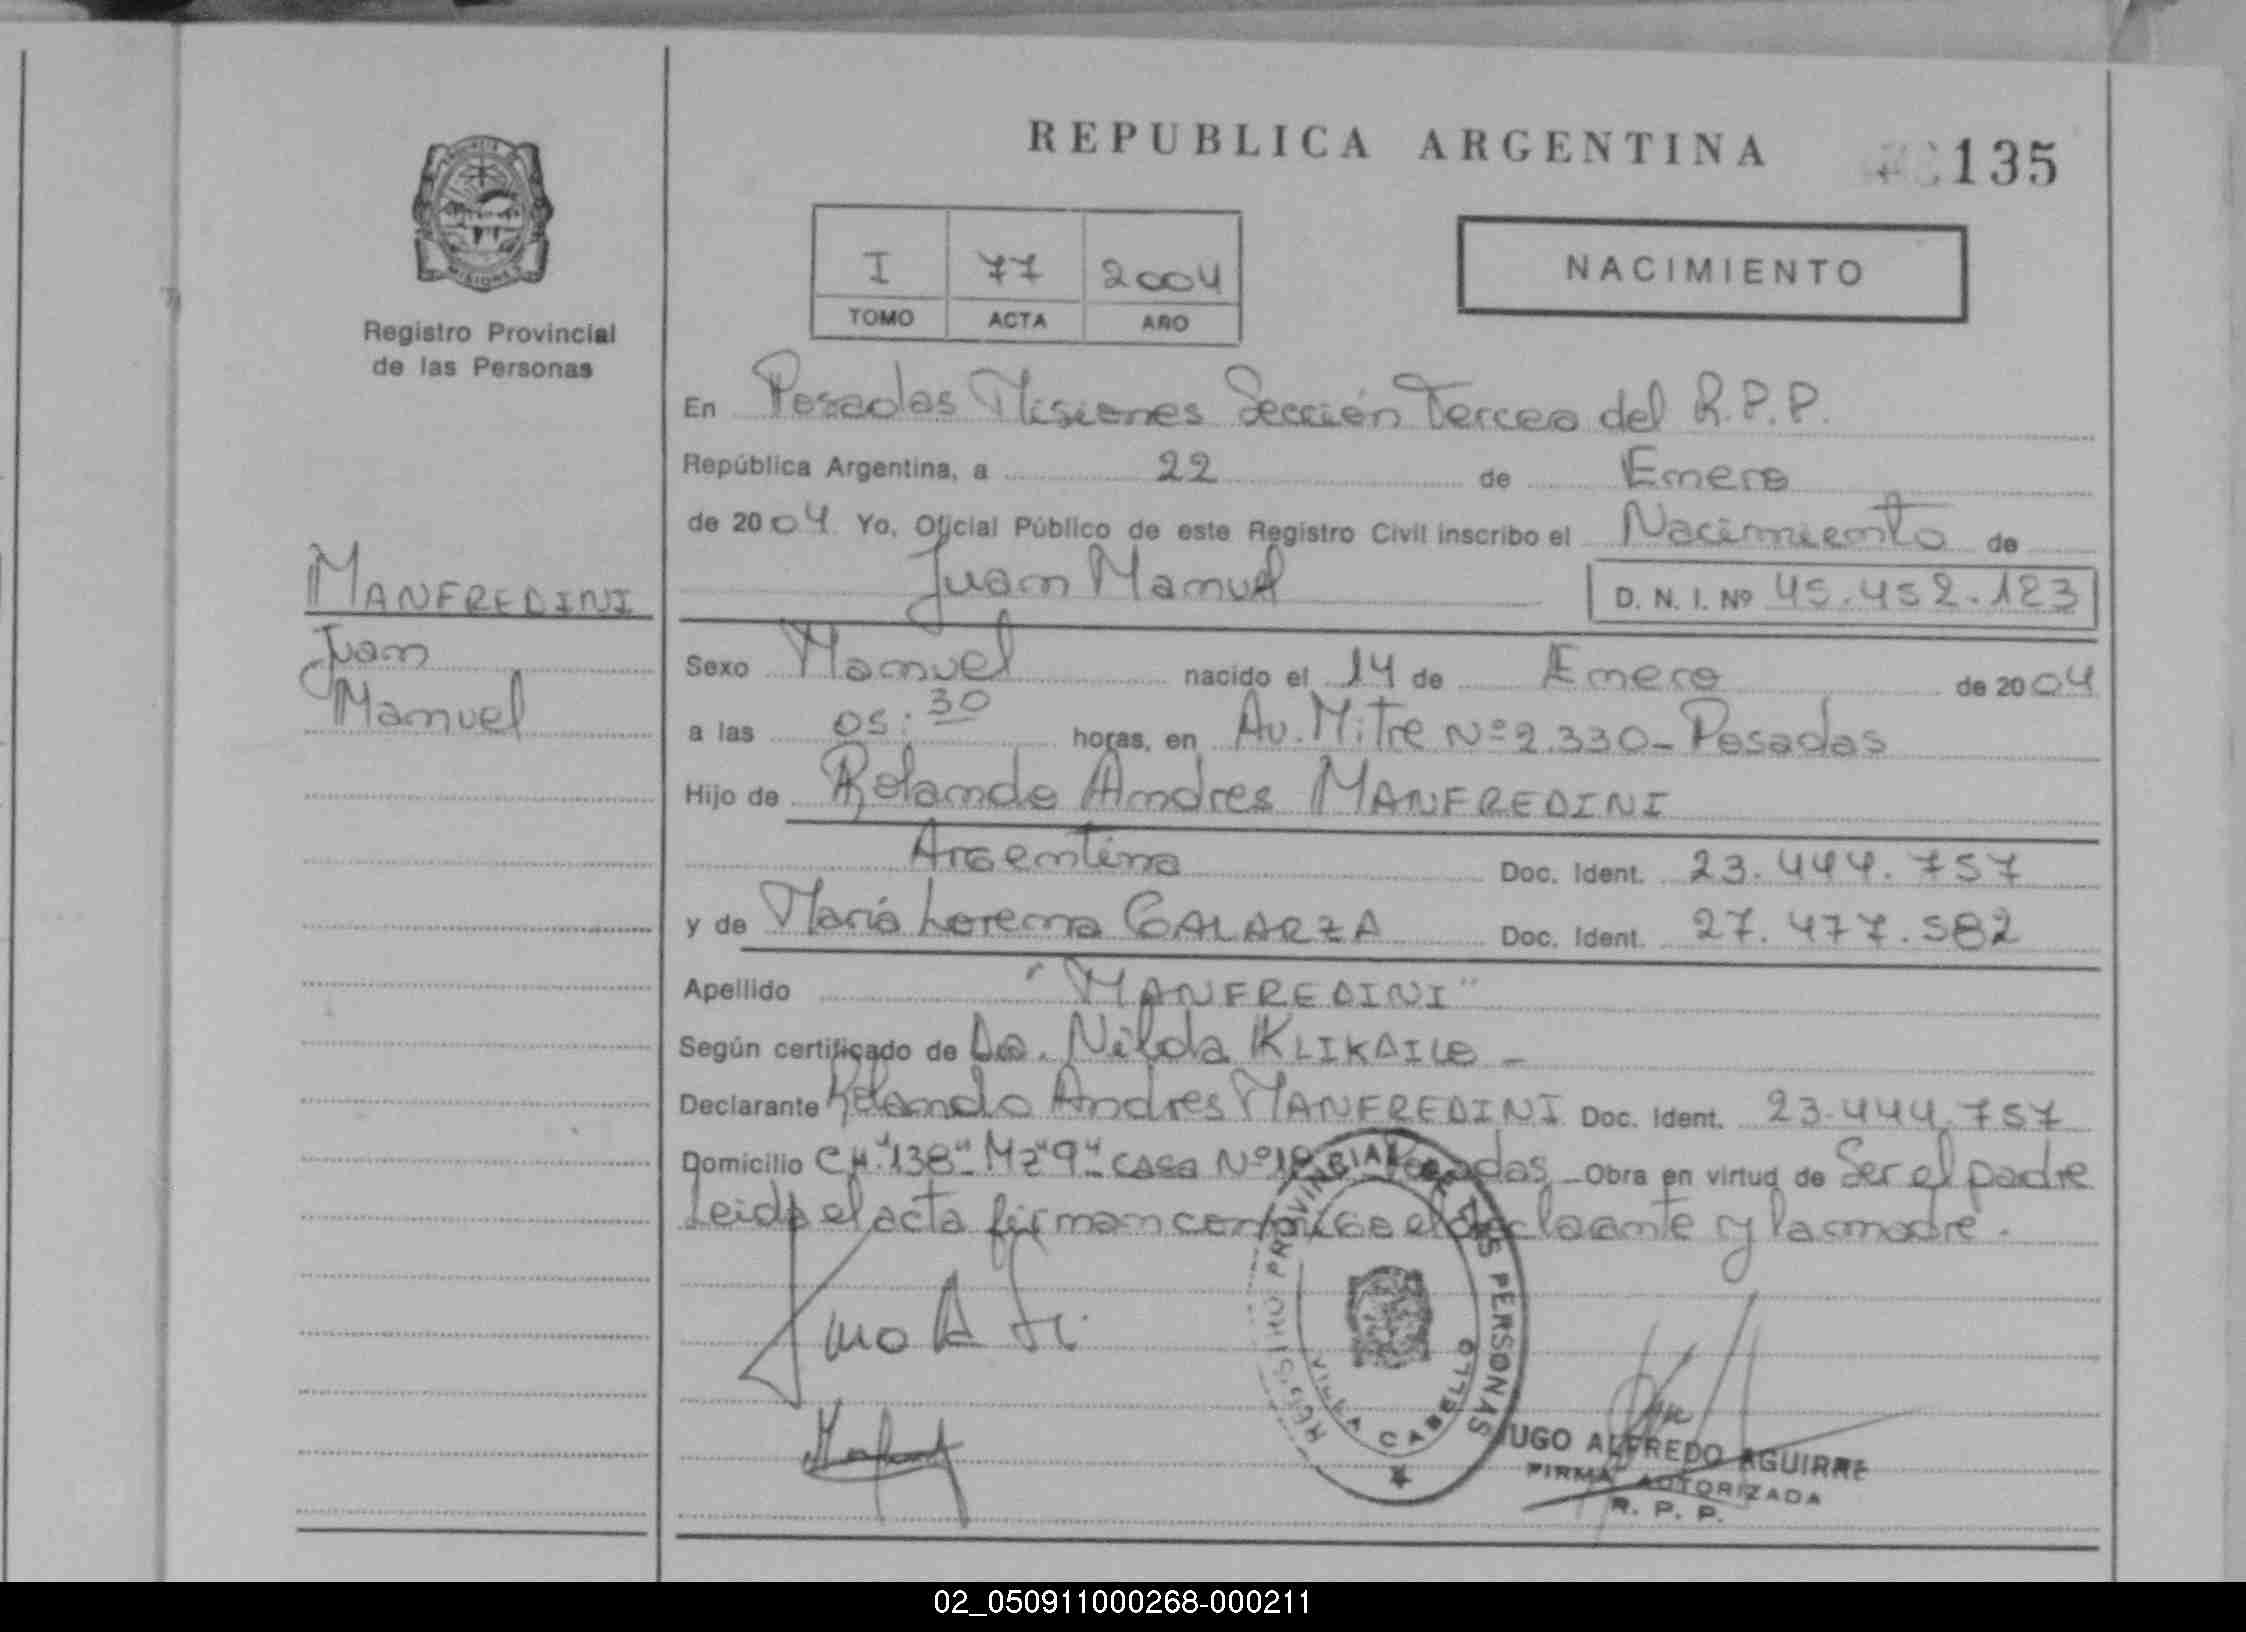 REPUBLICA ARGENTINA
135
I 77 2004
TOMO ACTA AÑO
NACIMIENTO
PROVINCIA DE
MISIONES
Registro Provincial
de las Personas
MANFREDINI
Juan
Manuel
En Posadas Misiones Sección Tercera del R.P.P.
República Argentina, a 22 de Enero
de 2004 Yo, Oficial Público de este Registro Civil inscribo el Nacimiento de
Juan Manuel D. N. I. Nº 45.452.123
Sexo Manuel nacido el 14 de Enero de 2004
a las 05:30 horas, en Av. Mitre Nº 2.330 - Posadas
Hijo de Rolando Andres MANFREDINI
Argentina Doc. Ident. 23.444.757
y de María Lorena GALARZA Doc. Ident. 27.477.582
Apellido "MANFREDINI"
Según certificado de Dra. Nilda
Declarante Rolando Andres MANFREDINI Doc. Ident. 23.444.757
Domicilio CH."138" Mz"9" casa Nº Posadas Obra en virtud de Ser el padre
Leida el acta firman conmigo el declarante y la madre.
REGISTRO PROVINCIAL DE LAS PERSONAS
VILLA CABELLO
HUGO ALFREDO AGUIRRE
FIRMA AUTORIZADA
R. P. P.
02_050911000268-000211